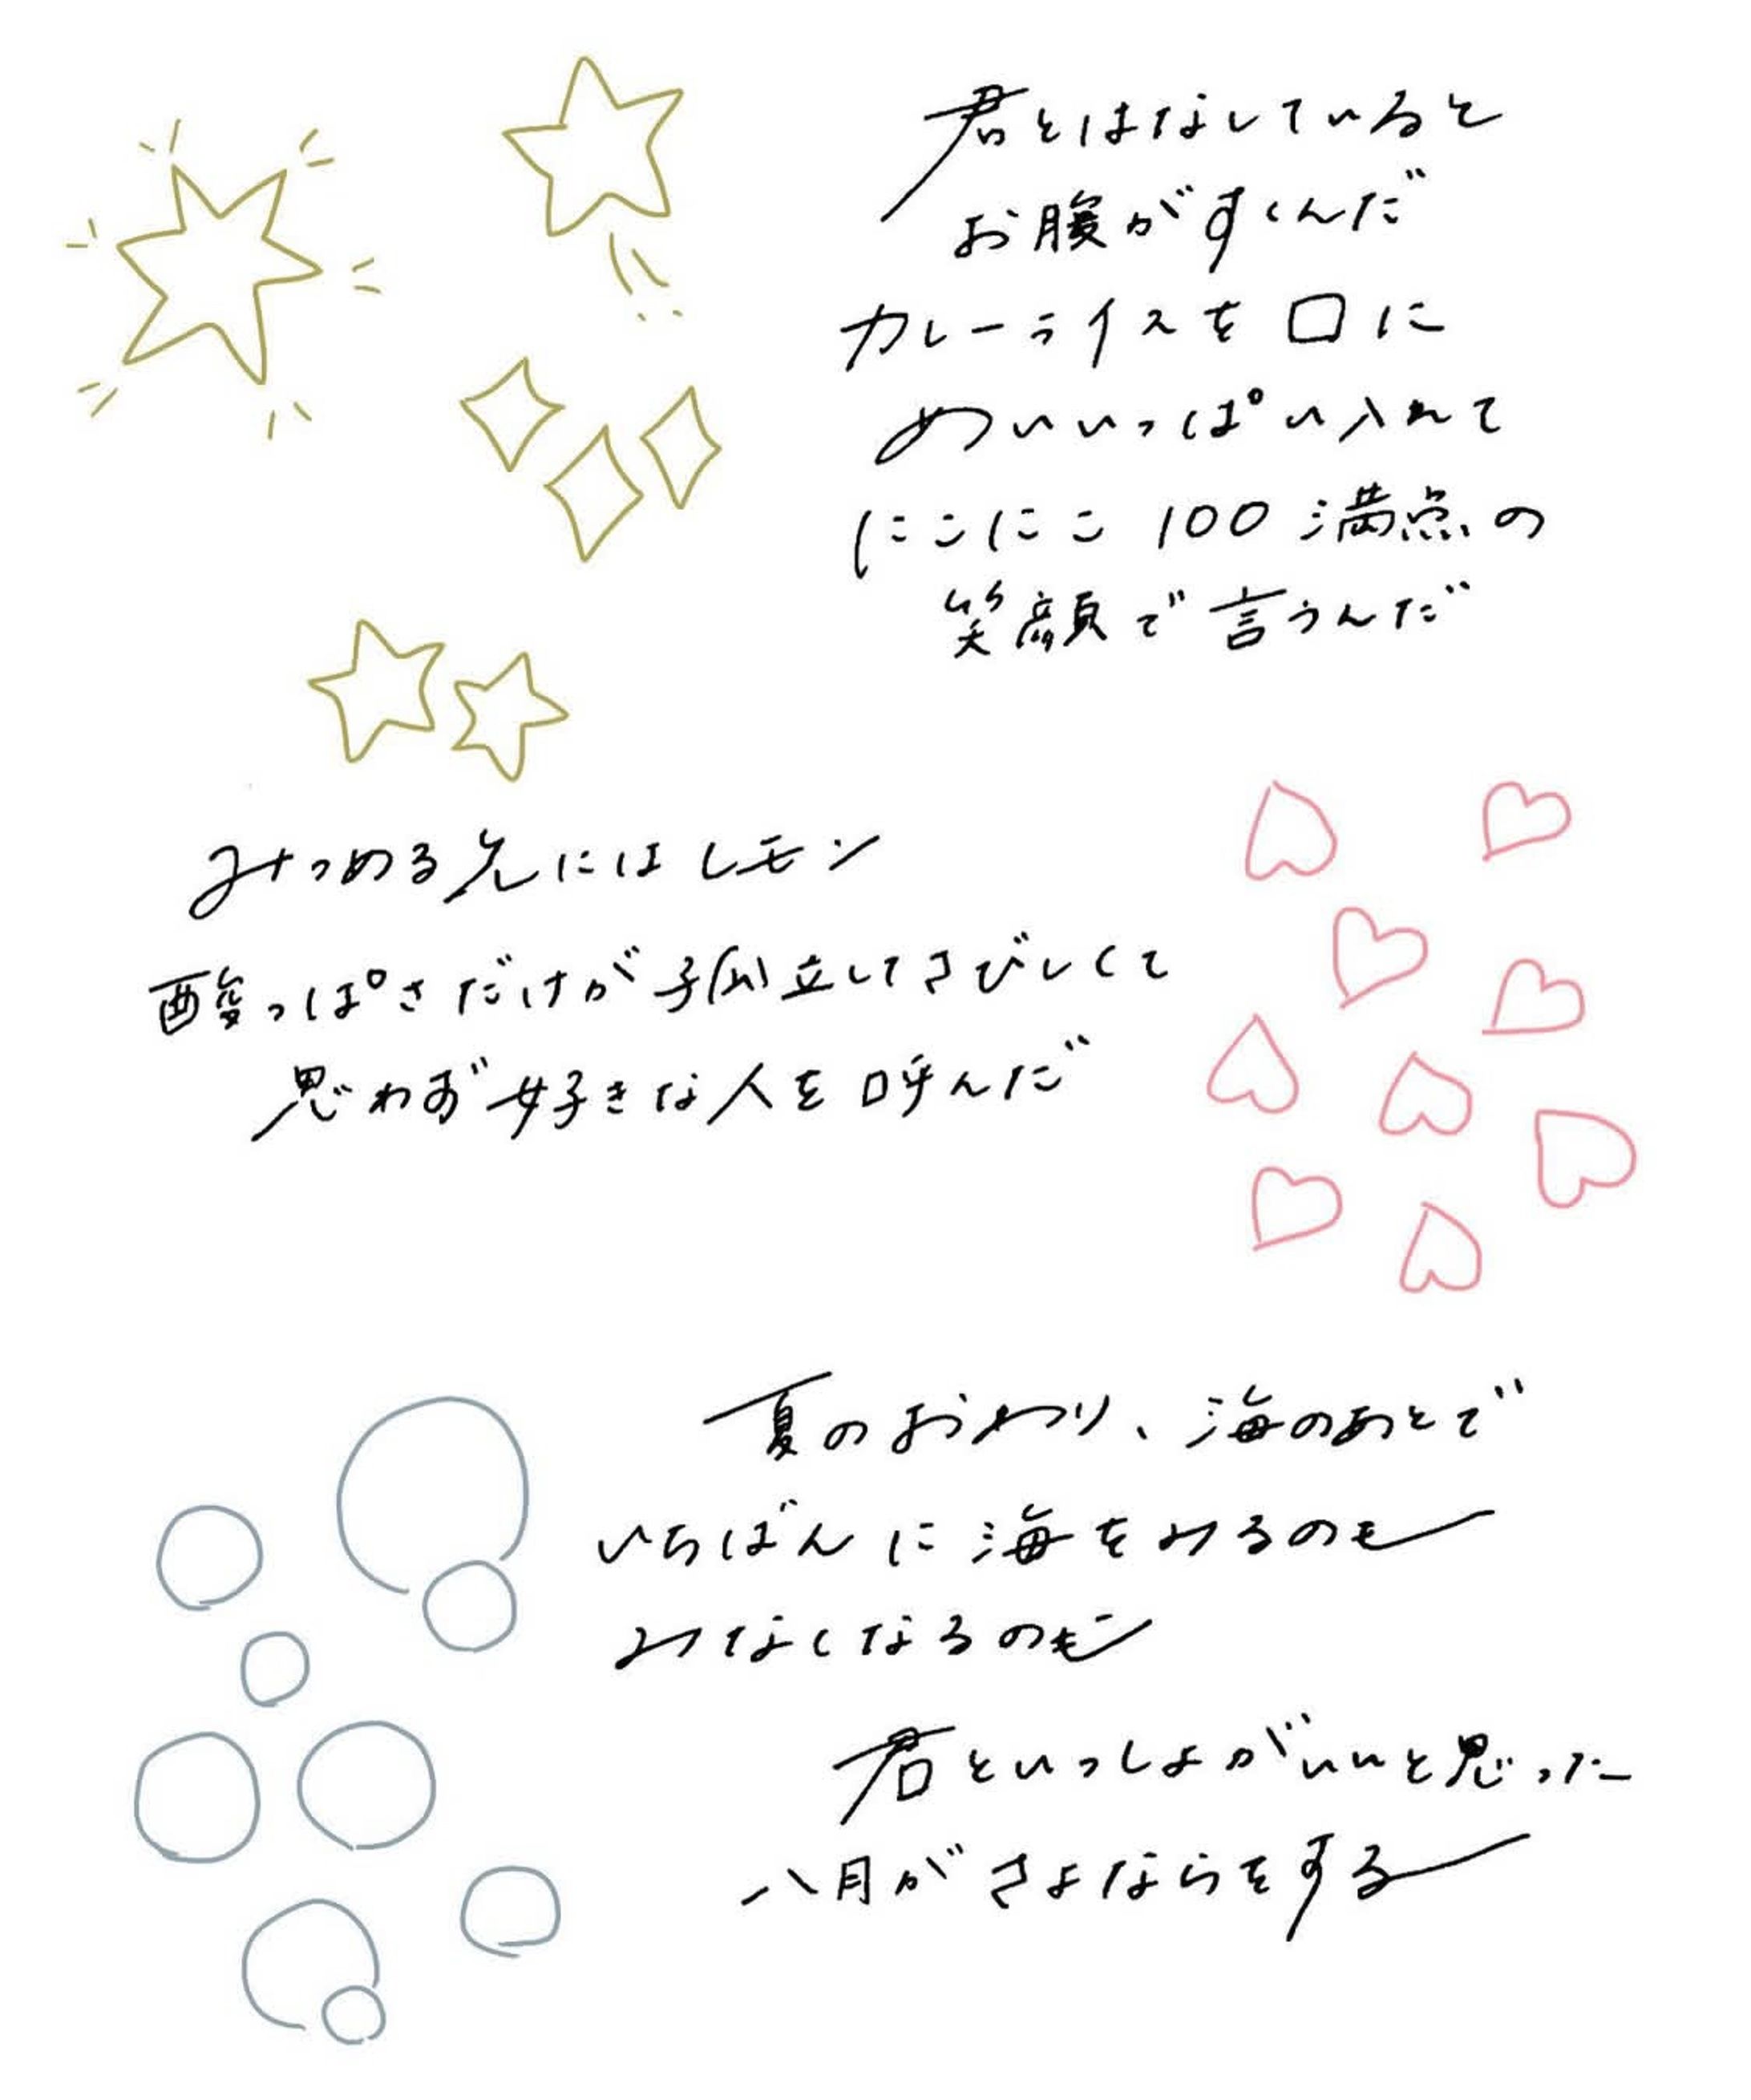 君とはなしていると
お腹がすくんだ
カレーライスを口に
めいいっぱい入れて
にこにこ100満点の
笑顔で言うんだ
みつめる先にはレモン
酸っぱさだけが孤立してさびしくて
思わず好きな人を呼んだ
夏のおわり、海のあとで
いちばんに海をみるのも
みなくなるのも
君といっしょがいいと思った
八月がさよならをする